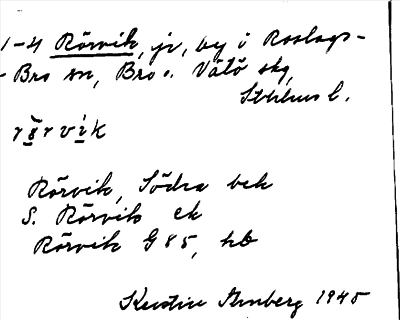 1-4 Rörvik, jr, by i Roslags-
-Bro sn, Bro o. Vätö skg,
Sthlms l.
rörvik
Rörvik, Södra bek
S. Rörvik ek
Rörvik G 85, hb
Kerstin 1945